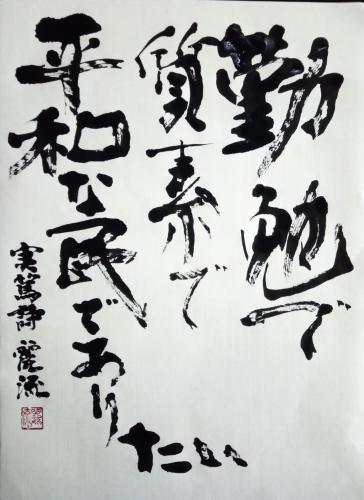 勤勉で
質素で
平和な民でありたい
実篤詩 麗流